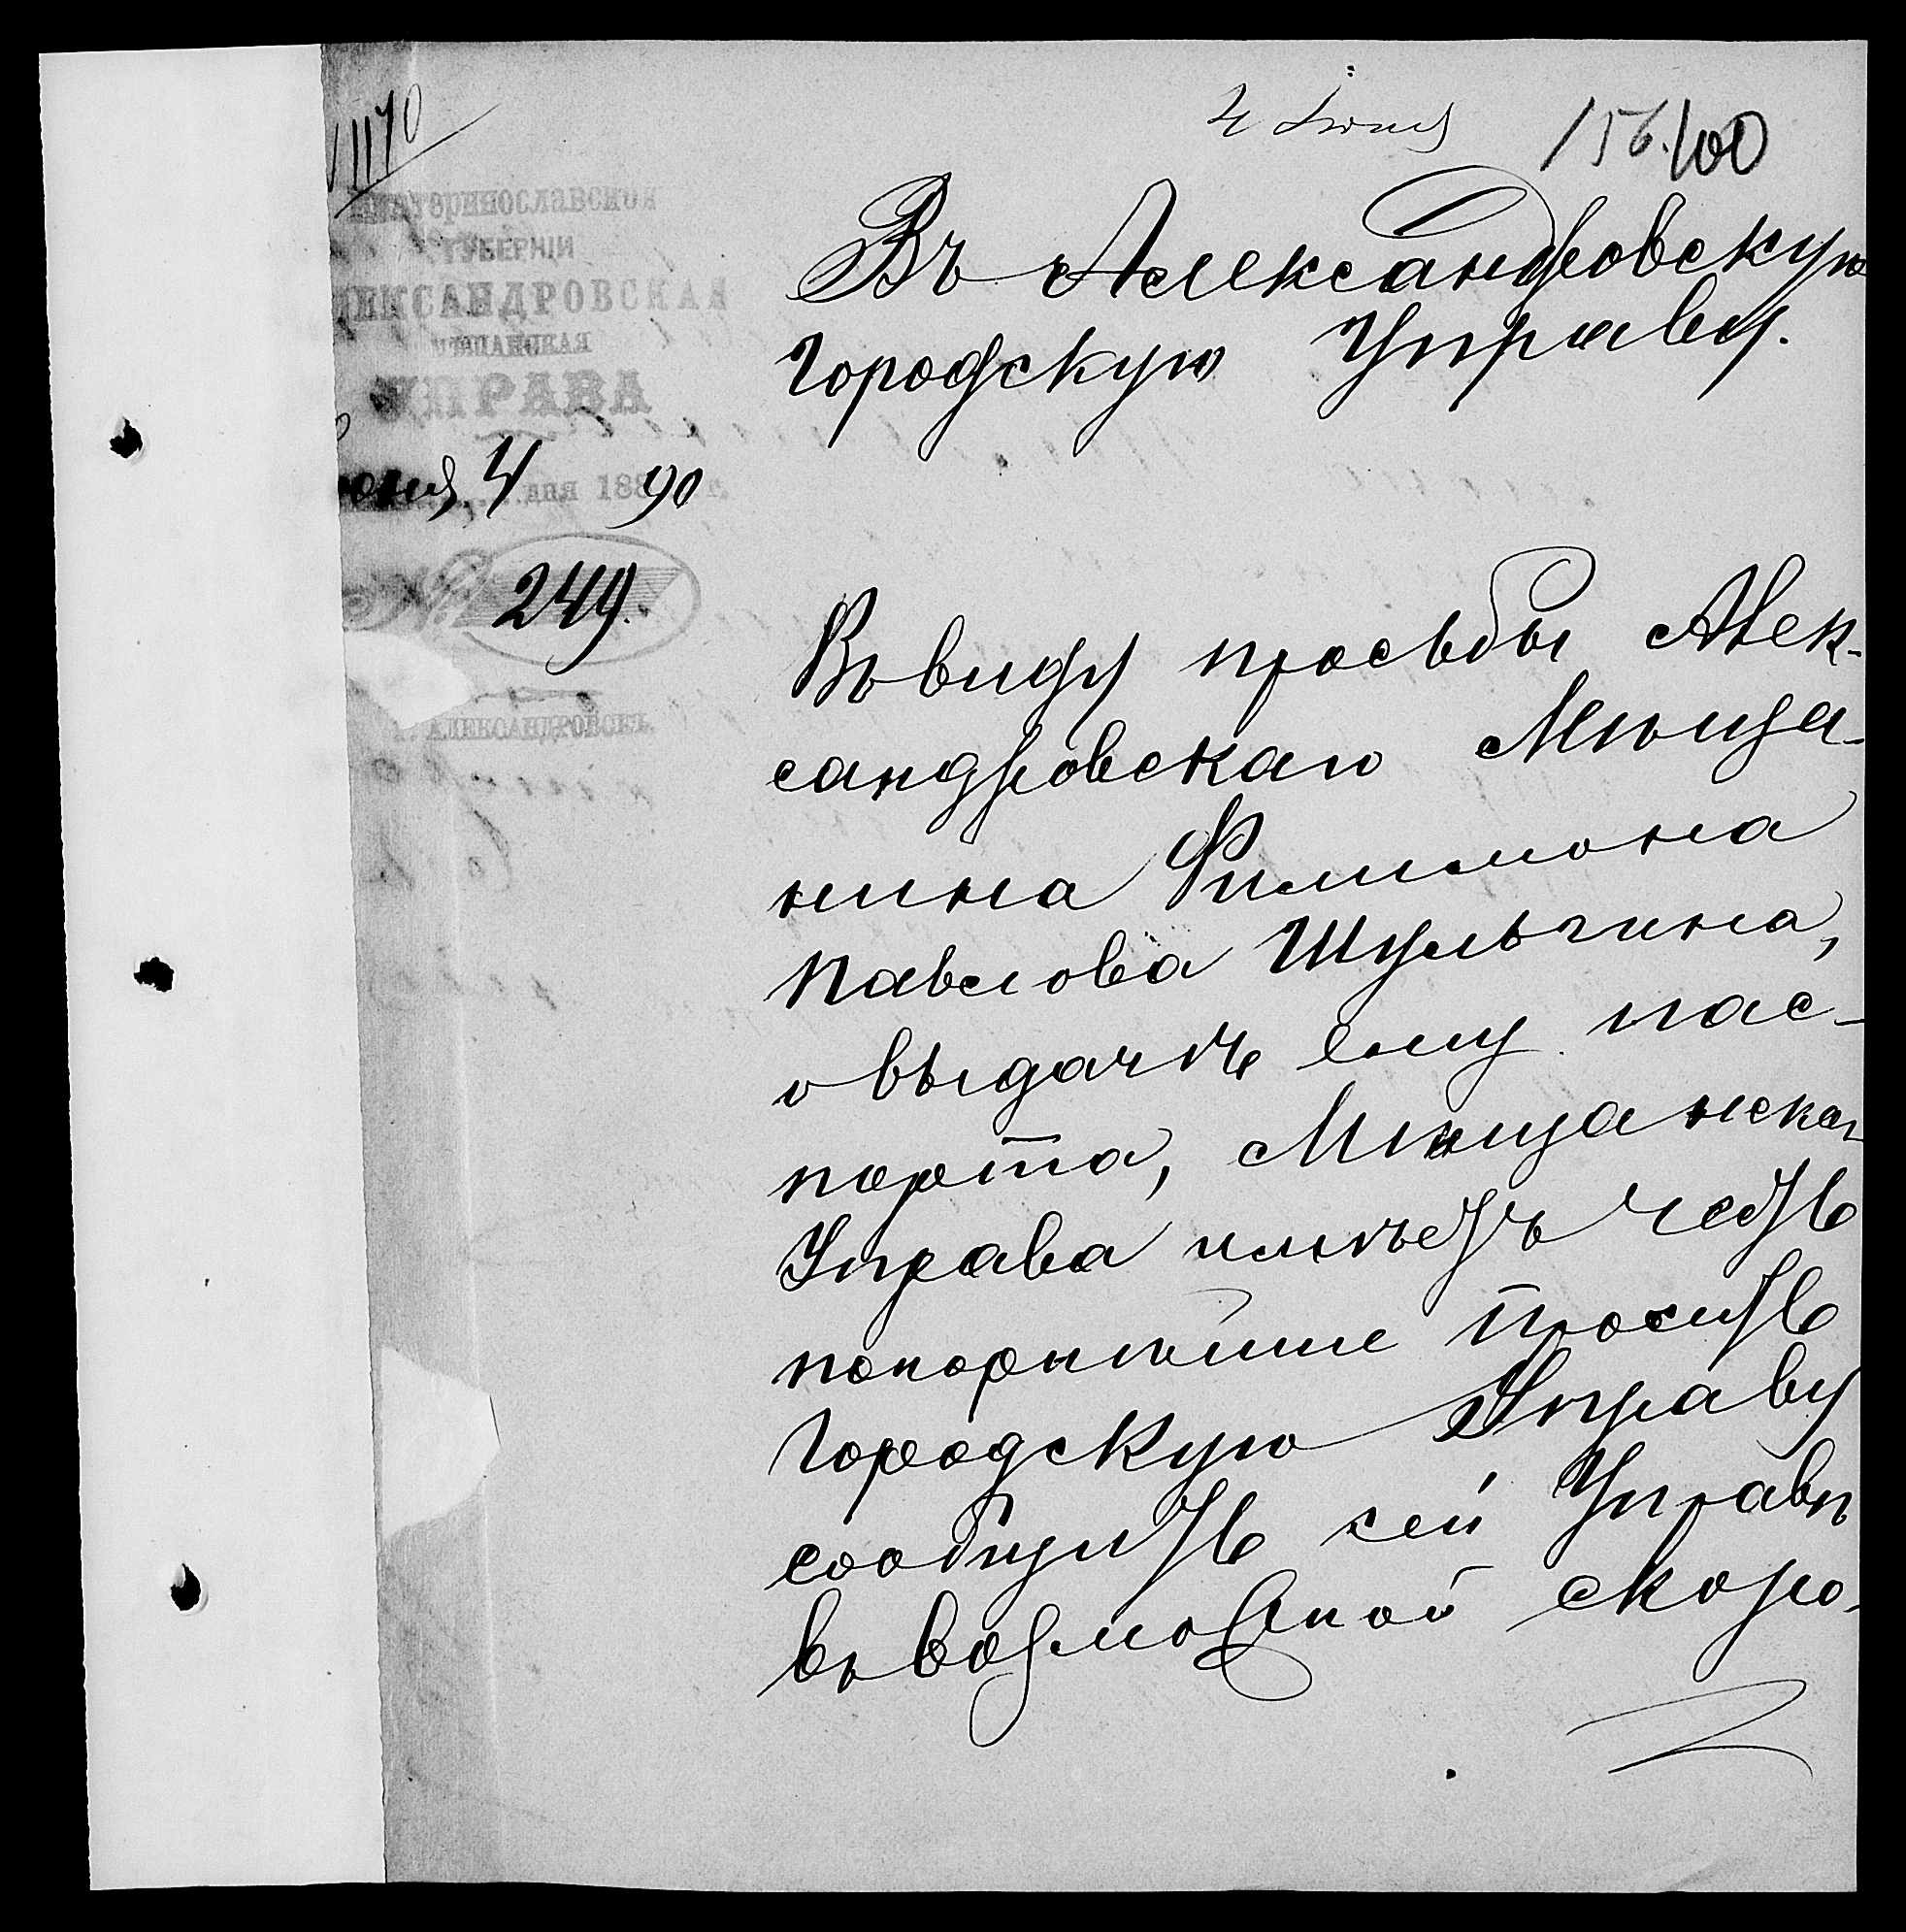 1170
4 Іюня
156. 100
Екатеринославской
ГУБЕРНІИ
ЛЕКСАНДРОВСКАЯ
МѢЩАНСКАЯ
УПРАВА
юня 4 дня 1890 г.
249.
АЛЕКСАНДРОВСКЪ.
Въ Александровскую
Городскую Управу.
Въ виду просьбы Алек-
сандровскаго Мѣща-
нина Филимона
Павлова Шульгина,
о выдачѣ ему пас-
порта, Мѣщанская
Управа имѣетъ честь
покорнѣйше просить
Городскую Управу
сообщить сей Управѣ
въ возможной скоро-